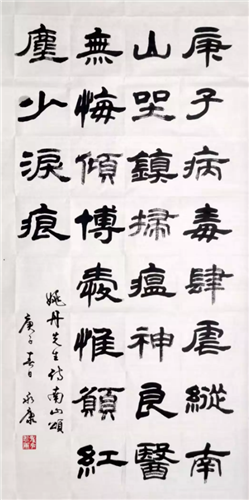 庚子病毒肆虐縱南
山坐鎮掃瘟神良醫
無悔傾博愛惟願紅
塵少淚痕
姚丹先生詩南山頌
庚子春日永康